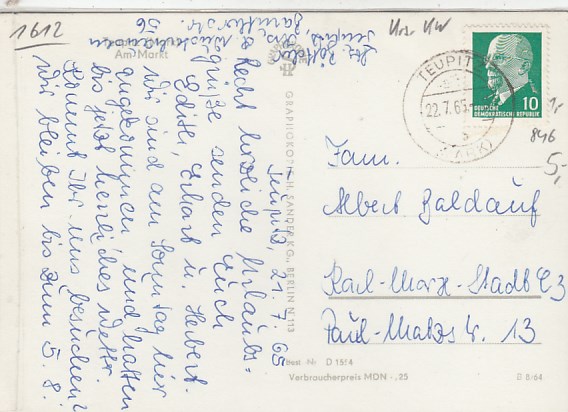 1612
Am Markt
Teupitz, 21.7.65
Recht herzliche Urlaubs-
grüße senden Euch
Edith, Erhart u. Herbert.
Wir sind am Sonntag hier
angekommen und hatten
bis jetzt herrliches Wetter.
Kommt Ihr uns besuchen?
Wir bleiben bis zum 5.8.
GRAPHOKOPIE H. SANDER KG., BERLIN N 113
TEUPITZ
22.7.65
(MARK)
DEUTSCHE
DEMOKRATISCHE REPUBLIK
10
1,-
846
5,-
Fam.
Albert Baldauf
Karl-Marx-Stadt E3
Paul-Matzstr. 13
Best. Nr. D 1584
Verbraucherpreis MDN -,25
B 8/64